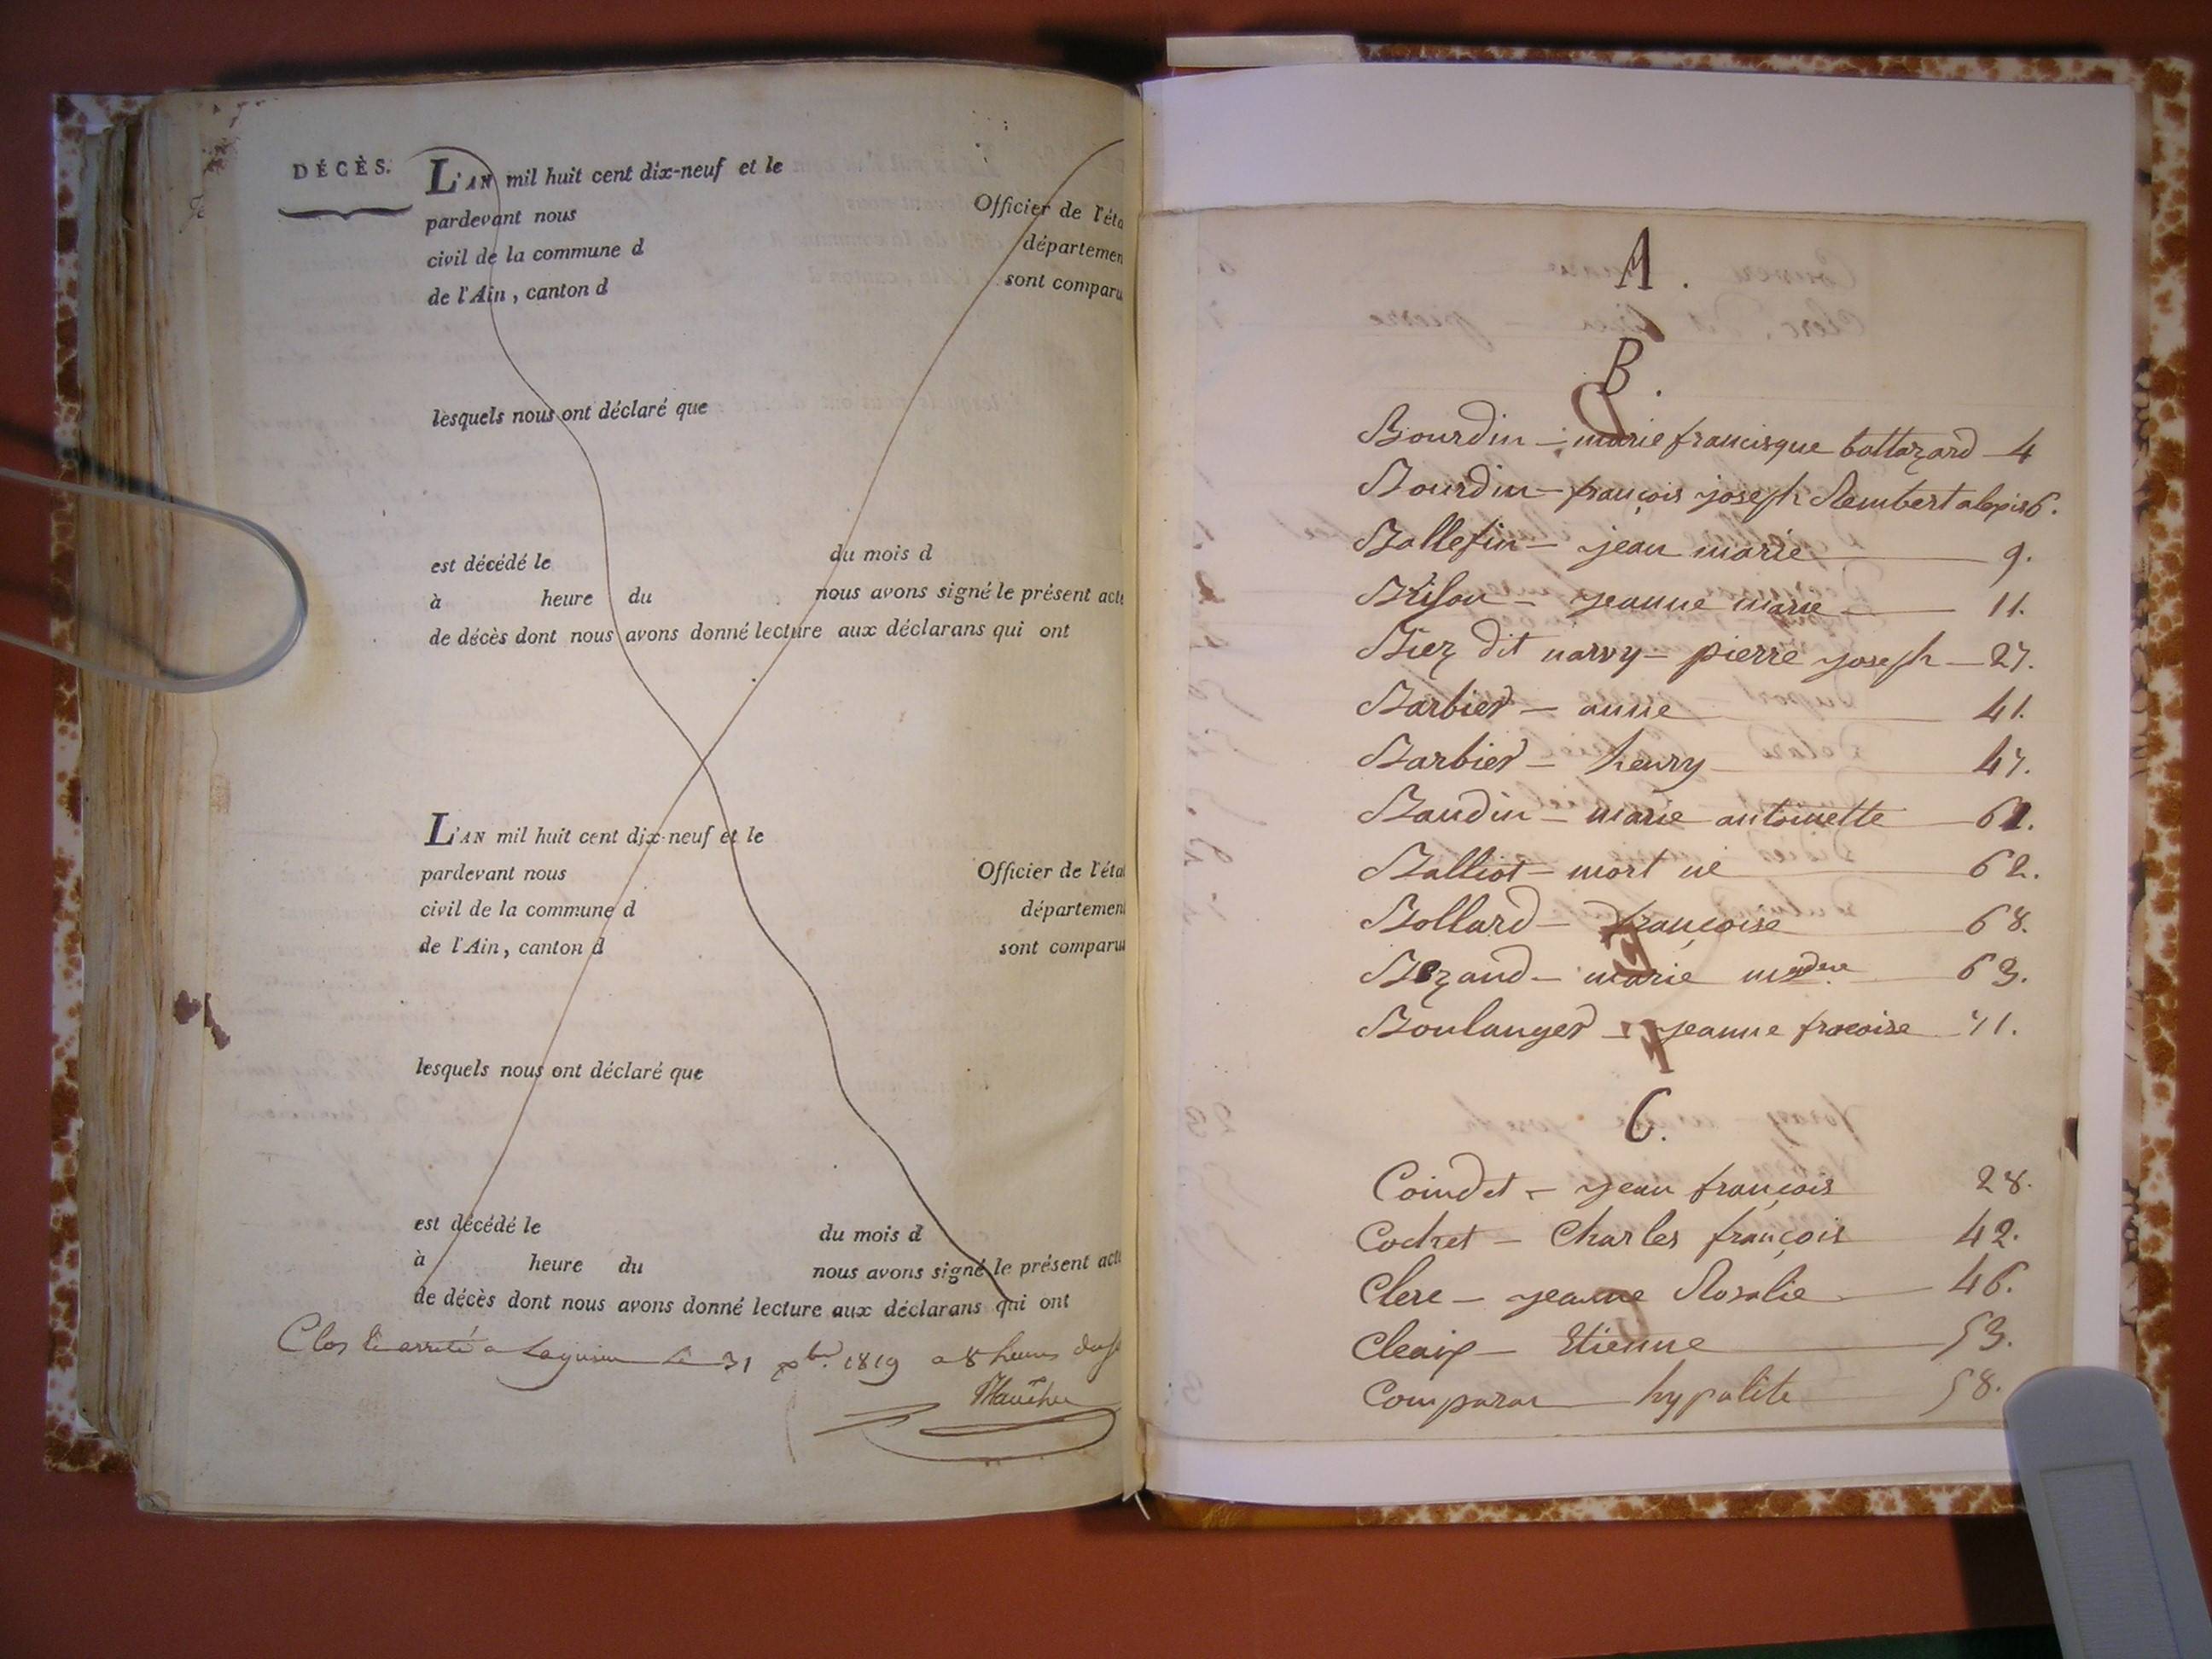 DÉCÈS.
L'AN mil huit cent dix-neuf et le
pardevant nous Officier de l'éta
civil de la commune d départemen
de l'Ain, canton d sont comparu
lesquels nous ont déclaré que
est décédé le du mois d
à heure du nous avons signé le présent acte
de décès dont nous avons donné lecture aux déclarans qui ont
L'AN mil huit cent dix-neuf et le
pardevant nous Officier de l'état
civil de la commune d département
de l'Ain, canton d sont comparu
lesquels nous ont déclaré que
est décédé le du mois d
à heure du nous avons signé le présent acte
de décès dont nous avons donné lecture aux déclarans qui ont
Clos et arrêté a Lagnieu le 31 xbre. 1819 a 8 heures du
A.
B.
Bourdin - marie francisque baltazard - 4
Bourdin - françois joseph Rembert alexis 6.
Ballefin - jean marie 9.
Brison - jeanne marie 11.
Biez dit narvy - pierre joseph - 27.
Barbier - anne 41.
Barbier - henry 47.
Baudin - marie antoinette 61.
Balliot - mort né 62.
Bollard - françoise 68.
Bozand - marie 69.
Boulanger - jeanne francoise 71.
C.
Coindet - jean françois 28.
Cochet - Charles françois 42.
Clerc - jeanne Rosalie 46.
Cleaix - Etienne 53.
Comparat hypolite 58.